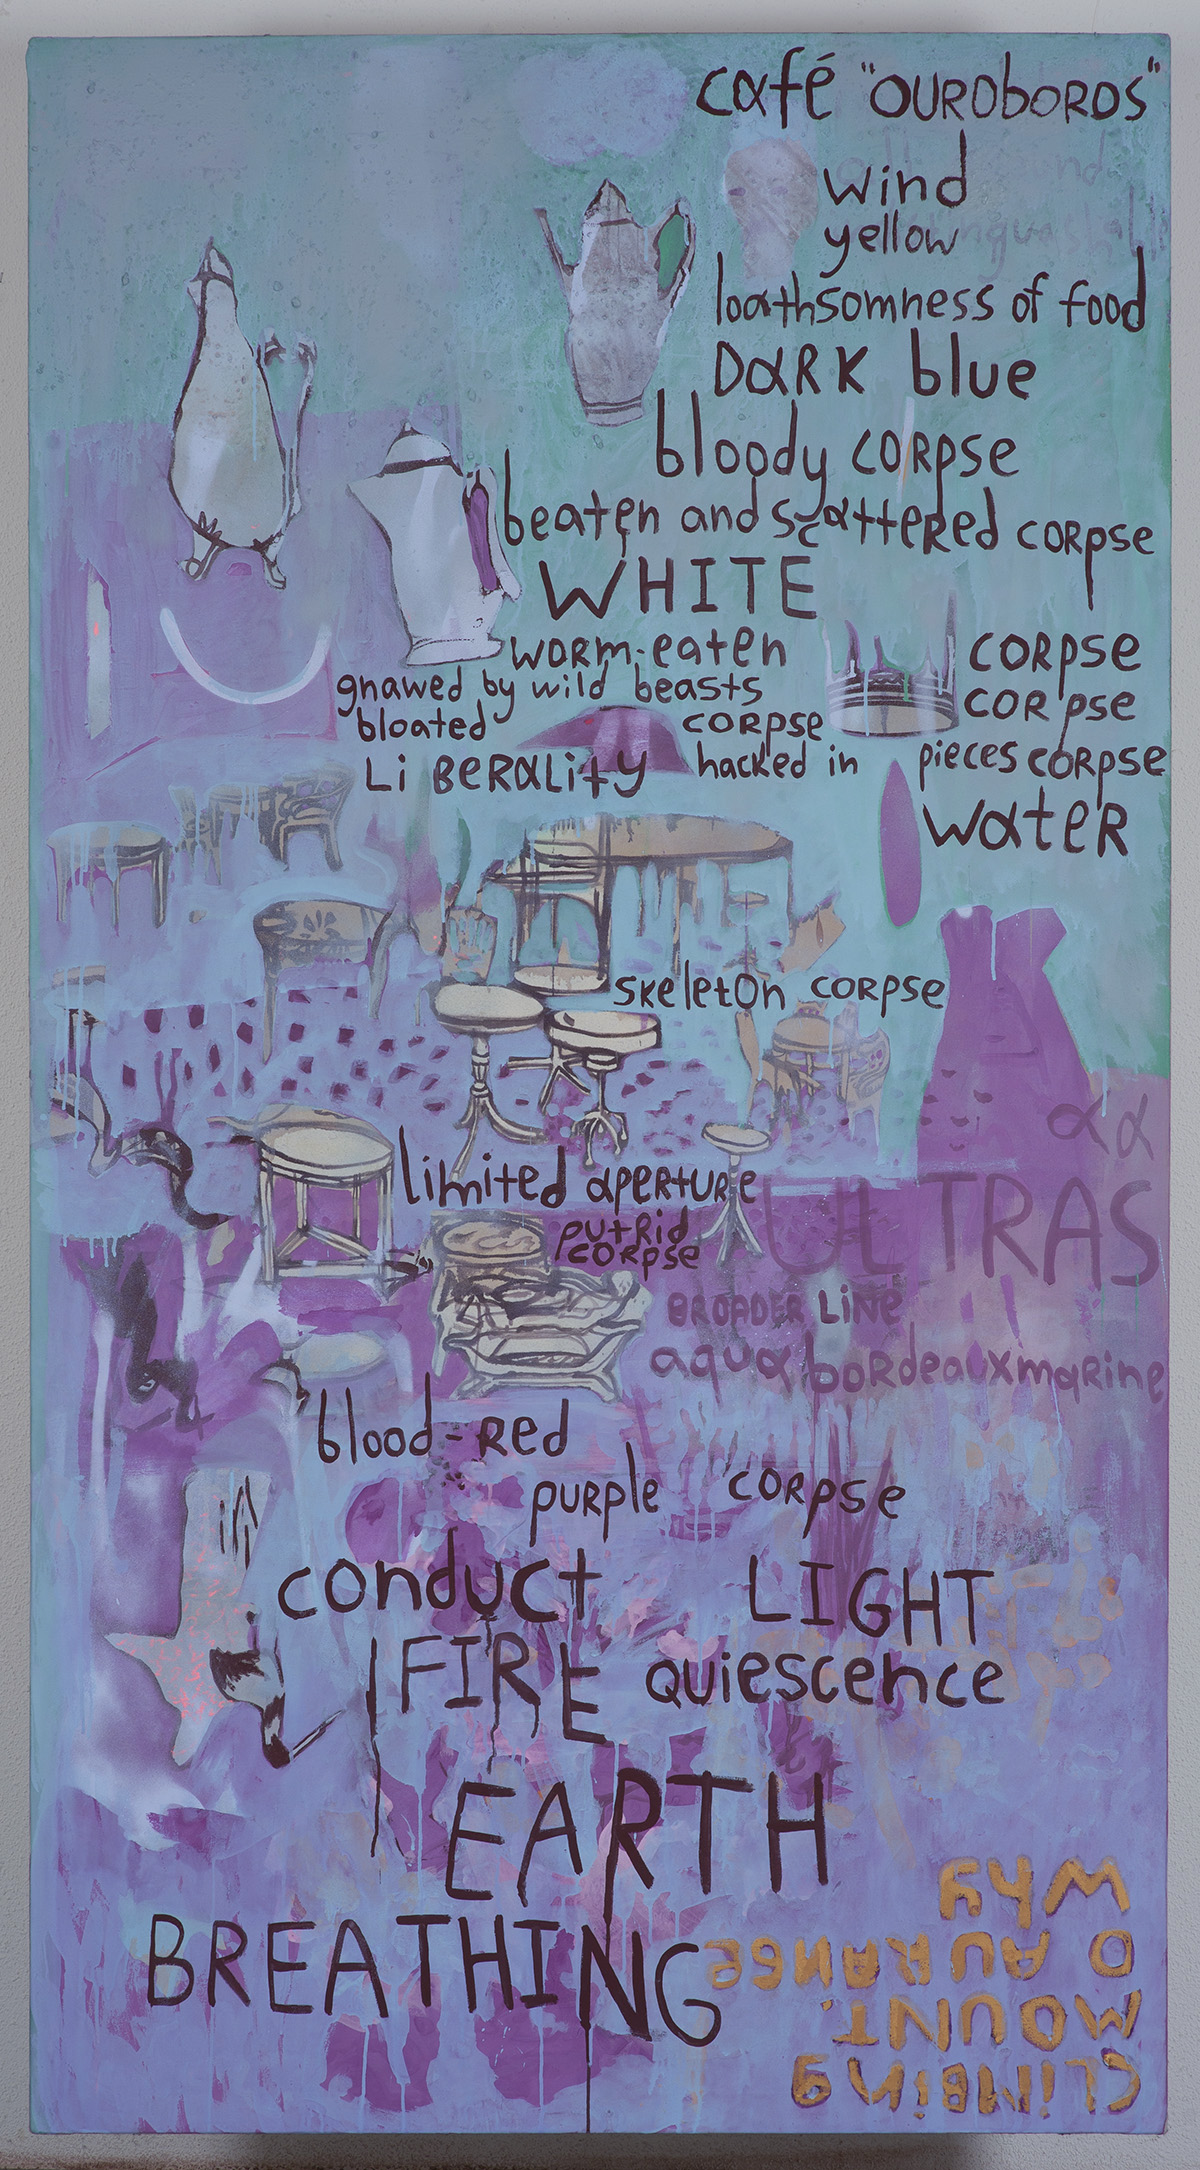 café "OUROboROS"
wind
yellow
loathsomness of food
DARK blue
bloody CORPSE
beaten and scattered CORPSE
WHITE
WORM-eaten CORPSE
gnawed by wild beasts CORPSE
bloated CORPSE
LiBERALity hacked in pieces CORPSE
WateR
skeletOn CORPSE
αα
limited aperture
ULTRAS
putRid
CORPSE
BROADER LINE
aqua bordeauxmarine
blood-Red
purple CORPSE
conduct LIGHT
FIRE quiescence
EARTH
BREATHING
CLIMBING
MOUNT.
D AURANGE
Why